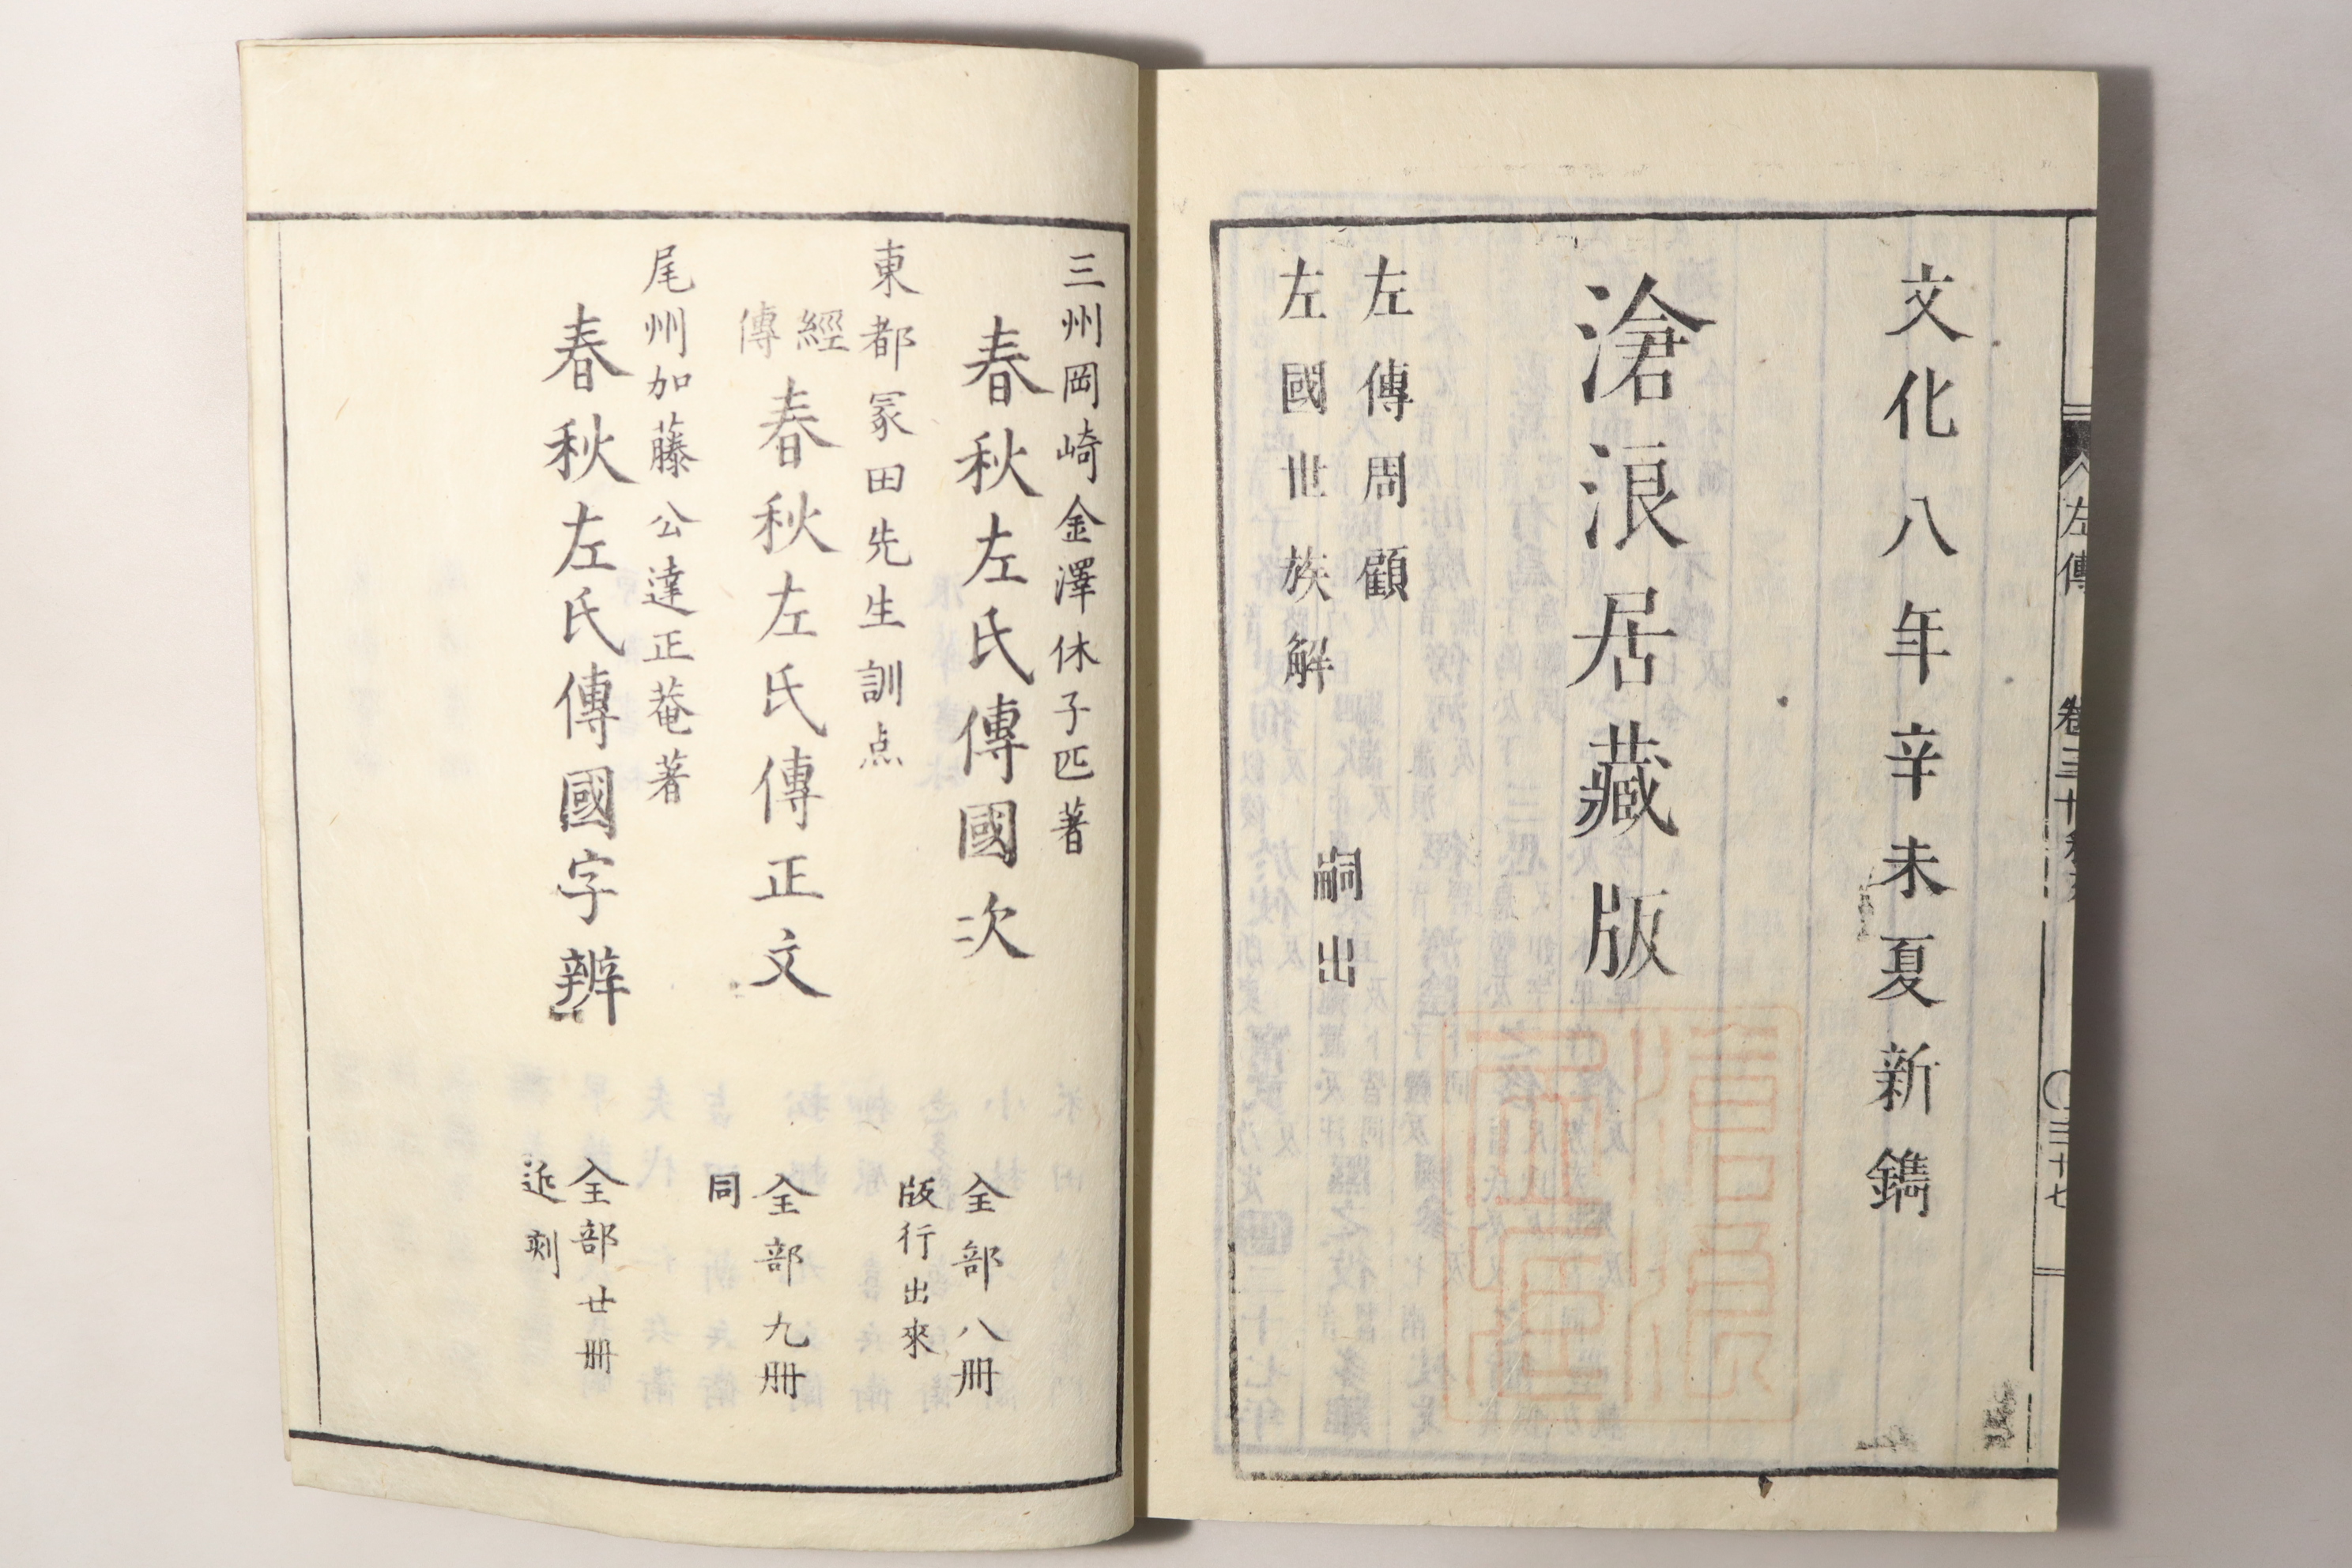 文化八年辛未夏新鐫
滄浪居藏版
左傳周顧
左國世族解
嗣出
三州岡崎金澤休子匹著
春秋左氏傳國次
全部八冊
版行出來
東都冢田先生訓点
經傳
春秋左氏傳正文
全部九冊
同
尾州加藤公達正菴著
春秋左氏傳國字辨
全部廿冊
近刻
左傳
卷三十
三十七